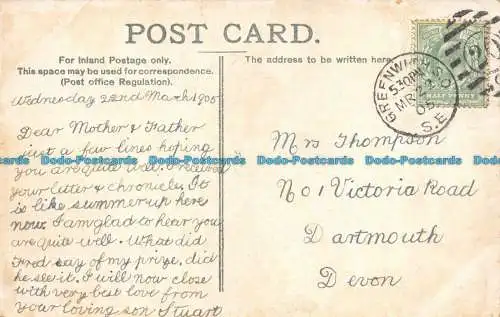 POST CARD.
For Inland Postage only.
This space may be used for correspondence.
(Post office Regulation).
The address to be written here.
GREENWICH
5.30PM
MR
05
S.E
HALF PENNY
Wednesday 22nd March 1905
Dear Mother & Father
just a few lines hoping
you are quite well. I received
your letter & chronicle. It
is like summer up here
now. I am glad to hear you
are quite well. What did
Fred say of my prize, did
he see it. I will now close
with very best love from
your loving son Stuart
Mrs Thompson
No 1 Victoria Road
Dartmouth
Devon
Dodo-Postcards Dodo-Postcards Dodo-Postcards
Dodo-Postcards Dodo-Postcards Dodo-Postcards